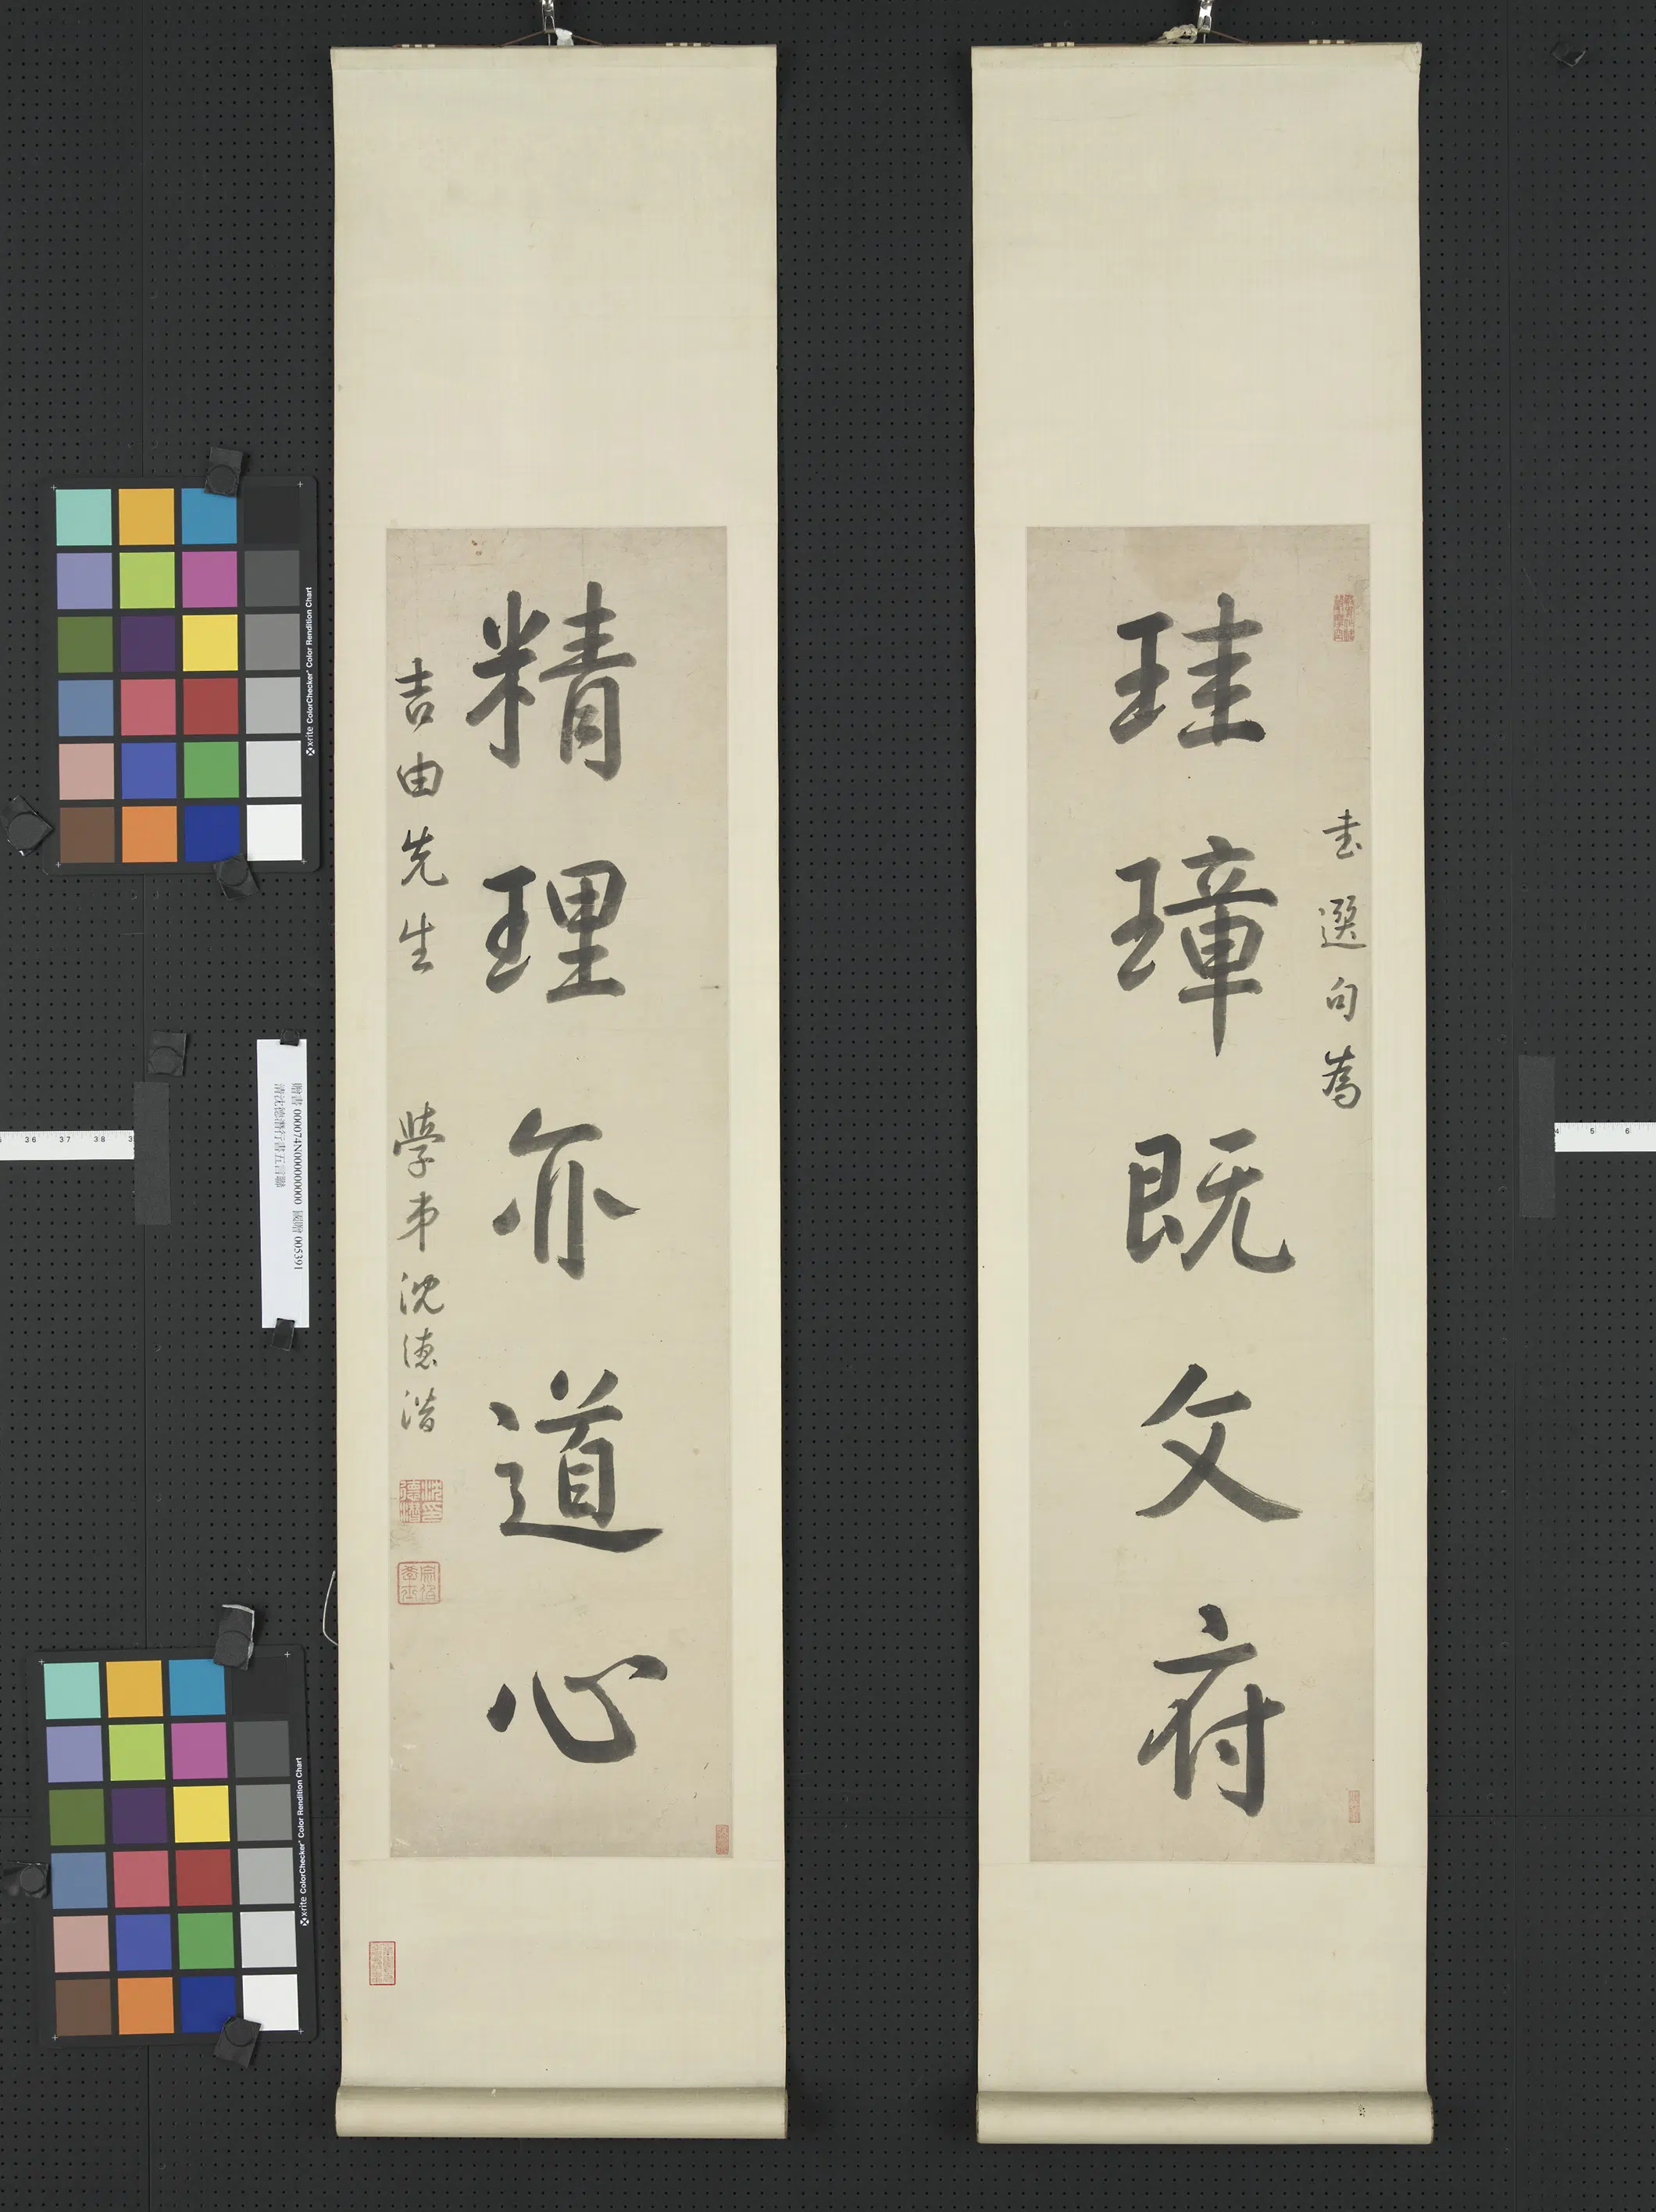 珪璋既文府
書選句為
精理亦道心
吉由先生
學弟沈德潛
沈德潛印
贈書 000074N000000000 國贈 005391
清沈德潛行書五言聯
x-rite ColorChecker Color Rendition Chart
x-rite ColorChecker Color Rendition Chart
36 37 38
4 5 6